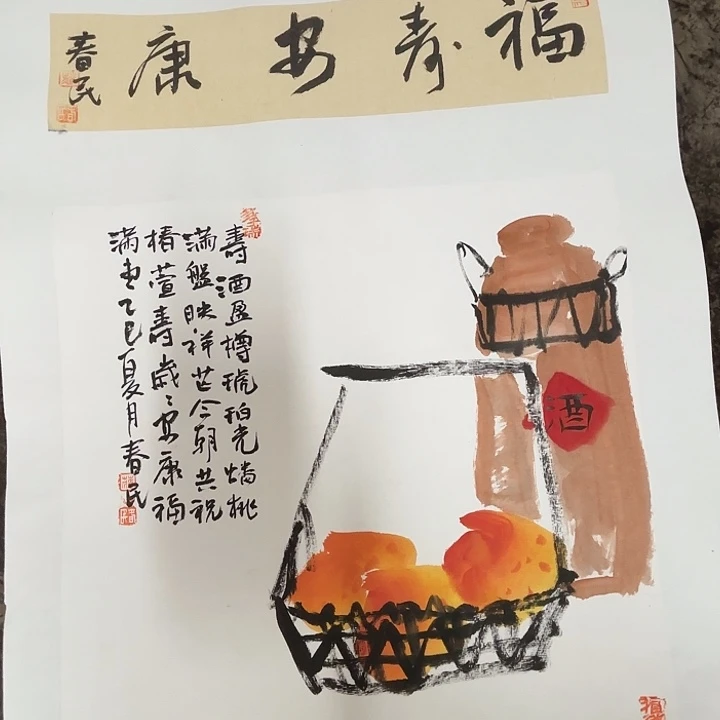 福寿安康
春民
壽酒盈樽琥珀光蟠桃
满盤映祥芒今朝共祝
椿萱壽歲々安康福
满堂乙巳夏月春民
酒